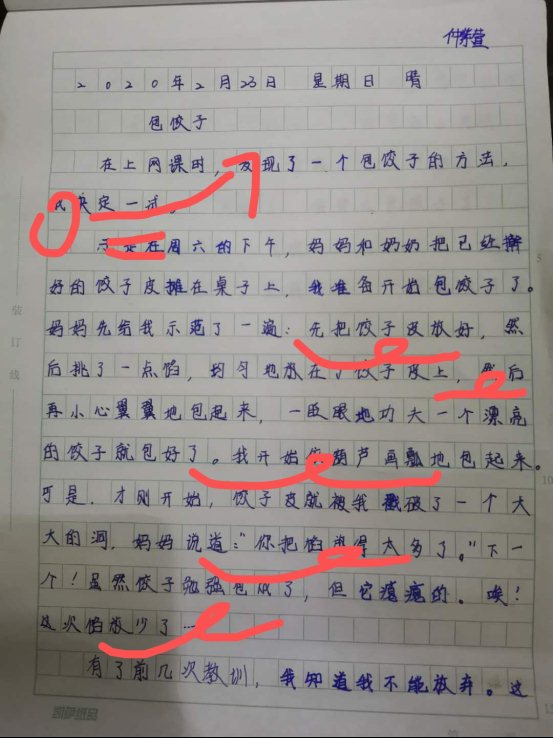 仲紫萱
2020年2月23日 星期日 晴
包饺子
在上网课时，发现了一个包饺子的方法，
我决定一试。
于是在周六的下午，妈妈和奶奶把已经擀
好的饺子皮摊在桌子上，我准备开始包饺子了。
妈妈先给我示范了一遍：先把饺子皮放好，然
后挑了一点馅，均匀地放在了饺子皮上，然后
再小心翼翼地包起来，一眨眼地功夫一个漂亮
的饺子就包好了。我开始依葫芦画瓢地包起来。
可是，才刚开始，饺子皮就被我戳破了一个大
大的洞，妈妈说道：“你把馅放得太多了。”下一
个！虽然饺子勉强包成了，但它瘪瘪的。唉！
这次馅放少了……
有了前几次教训，我知道我不能放弃。这
装订线
凯萨纸品